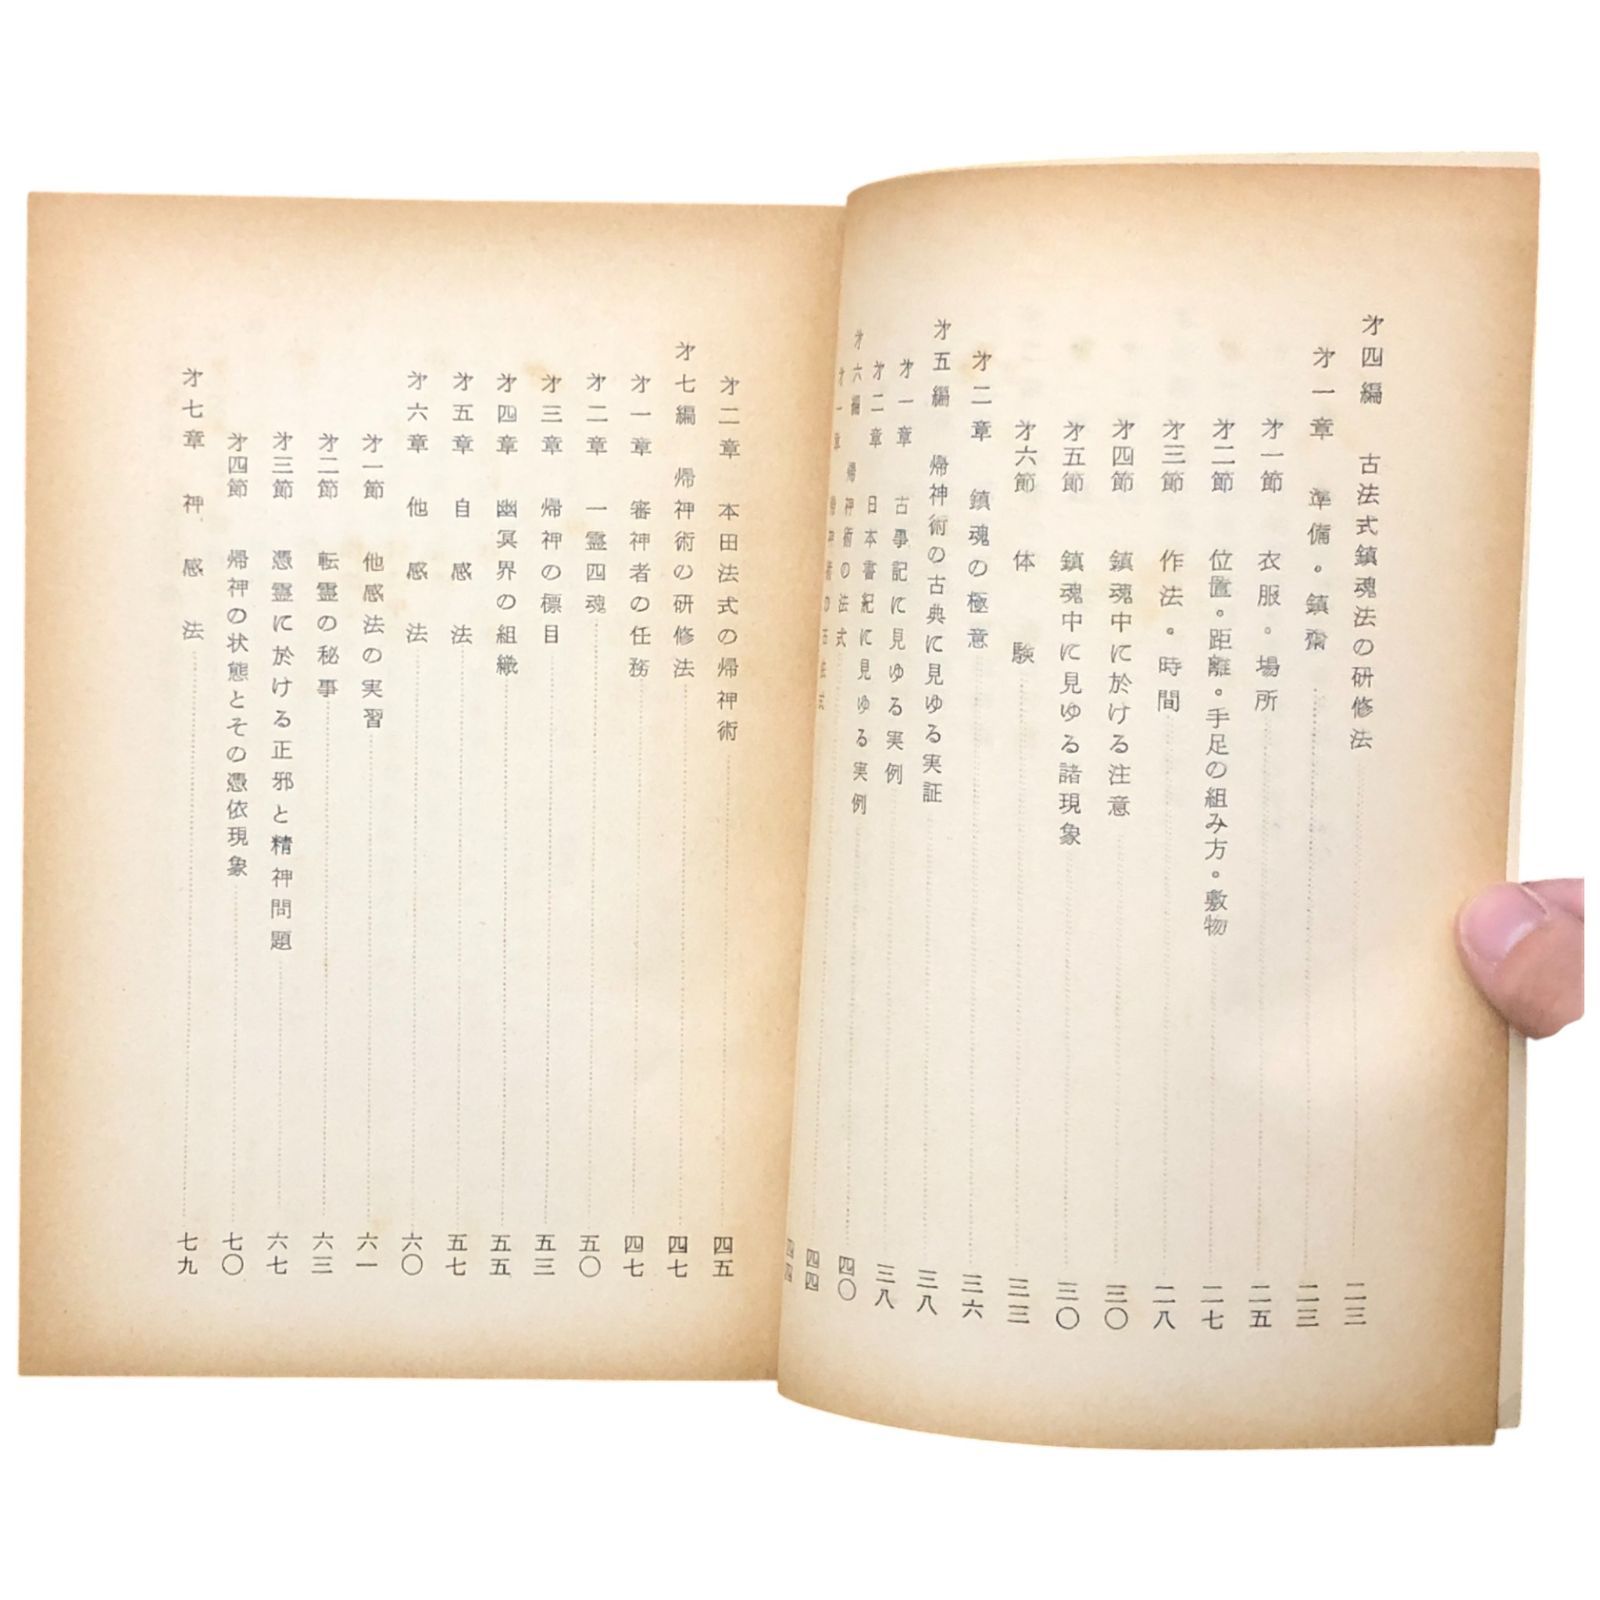 才四編　古法式鎮魂法の研修法……二三
才一章　準備。鎮齋……二三
才一節　衣服・場所……二五
才二節　位置。距離・手足の組み方。敷物……二七
才三節　作法・時間……二八
才四節　鎮魂中に於ける注意……三〇
才五節　鎮魂中に見ゆる諸現象……三〇
才六節　体験……三三
才二章　鎮魂の極意……三六
才五編　帰神術の古典に見ゆる実証……三八
才一章　古事記に見ゆる実例……三八
才二章　日本書紀に見ゆる実例……四〇
才六編　帰神術の法式……四四
才一章　帰神術の古法式……四四
才二章　本田法式の帰神術……四五
才七編　帰神術の研修法……四七
才一章　審神者の任務……四七
才二章　一霊四魂……五〇
才三章　帰神の標目……五三
才四章　幽冥界の組織……五五
才五章　自感法……五七
才六章　他感法……六〇
才一節　他感法の実習……六一
才二節　転霊の秘事……六三
才三節　憑霊に於ける正邪と精神問題……六七
才四節　帰神の状態とその憑依現象……七〇
才七章　神感法……七九